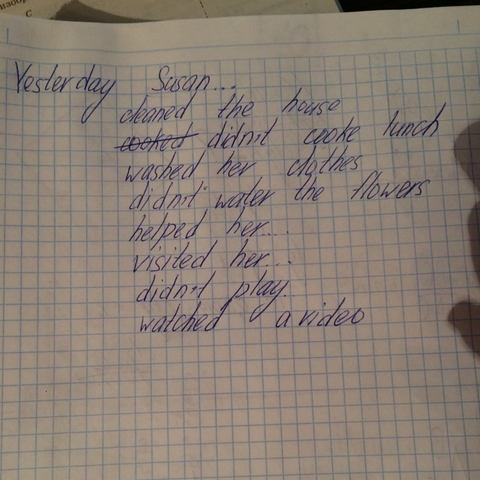 Yesterday Susan...
cleaned the house
cooked didn't cooke lunch
washed her clothes
didn't water the flowers
helped her...
visited her...
didn't play.
watched a video